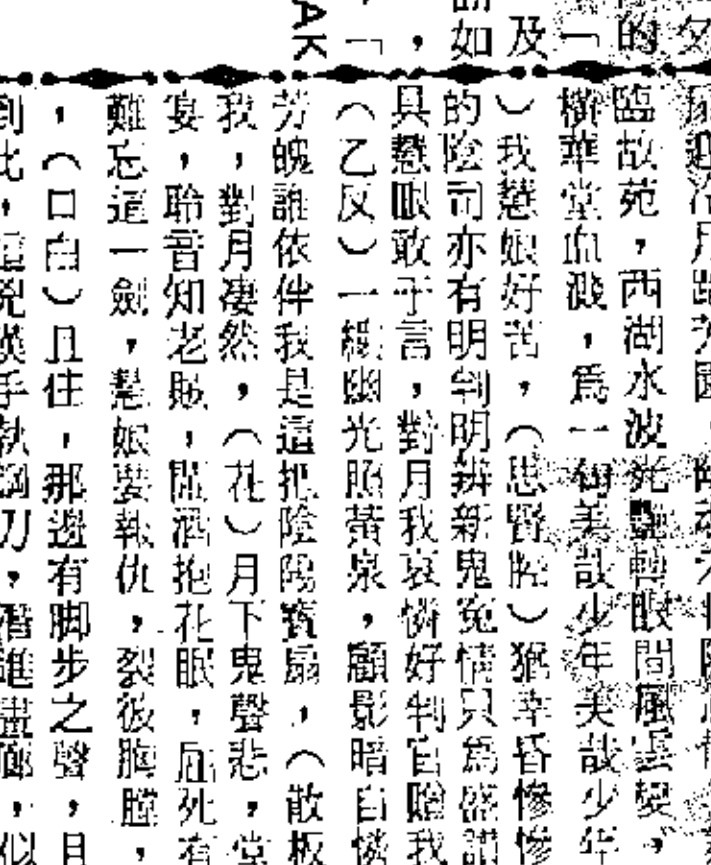 夕
的
「
及
如
，
「
AK
臨故苑，西湖水波光艷轉眼間風雲變，
華堂血濺，爲一個美哉少年美哉少年
）我慧娘好苦，（思賢腔）猶幸昏慘慘
的陰司亦有明判明辨新鬼冤情只爲盛讚
具慧眼敢于言，對月我哀憐好判官贈我
（乙反）一縷幽光照黃泉，顧影暗自憐
芳魄誰依伴我是這把陰陽寳扇，（散板
我，對月凄然，（花）月下鬼聲悲，堂
宴，聆音知老賊，置酒抱花眠，屈死有
難忘這一劍，慧娘要報仇，裂彼胸膛，
，（口白）且住，那邊有脚步之聲，且
到此，手執鋼刀，潛進畫廊，似